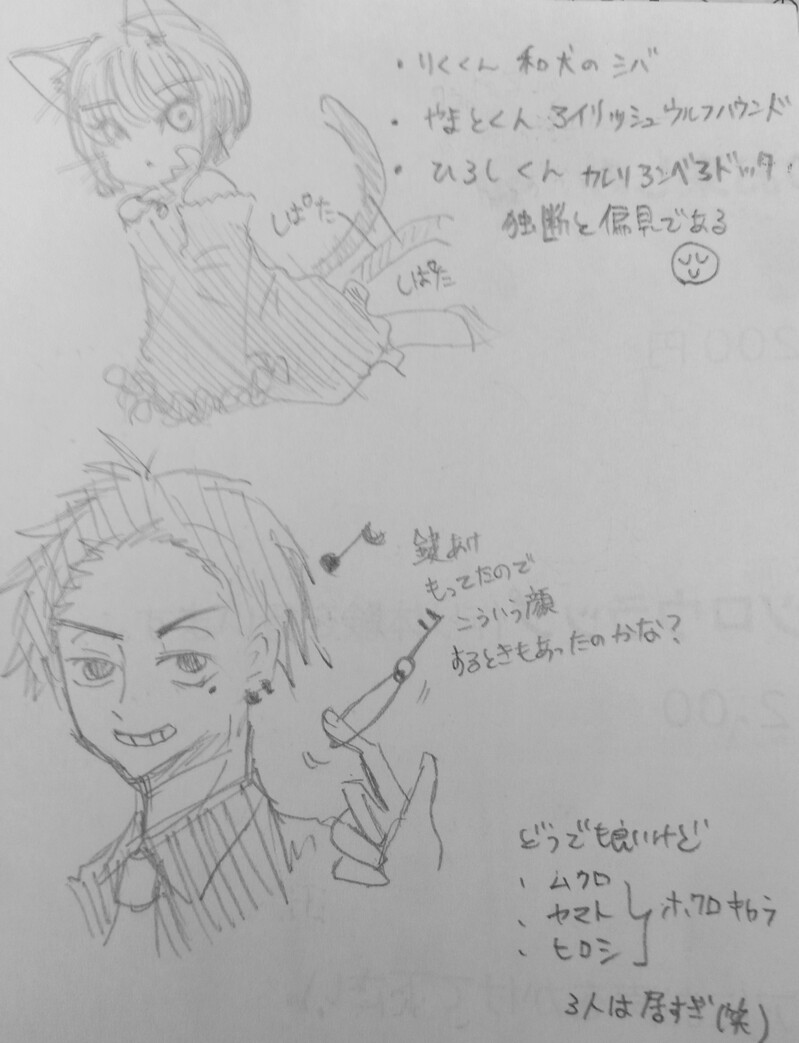 ・りくくん 和犬のシバ
・やまとくん アイリッシュウルフハウンド
・ひろしくん カレリアンベアドッグ・
独断と偏見である
しぱた
しぱた
鍵あけ
もってたので
こういう顔
するときもあったのかな?
どうでも良いけど
、ムクロ
、ヤマト
、ヒロシ
ホクロキャラ
3人は居すぎ(笑)
200円
2.00